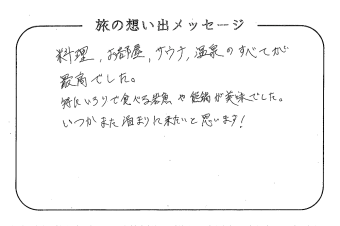 旅の想い出メッセージ
料理, お部屋, サウナ, 温泉のすべてが
最高でした。
特にいろりで食べる岩魚や熊鍋が美味でした。
いつかまた泊まりに来たいと思います!